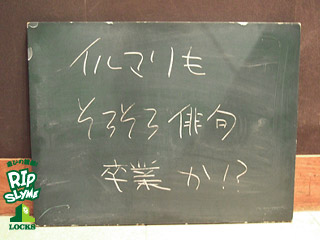 イルマリも
そろそろ俳句
卒業か!?
RIP
SLYME
LOCKS